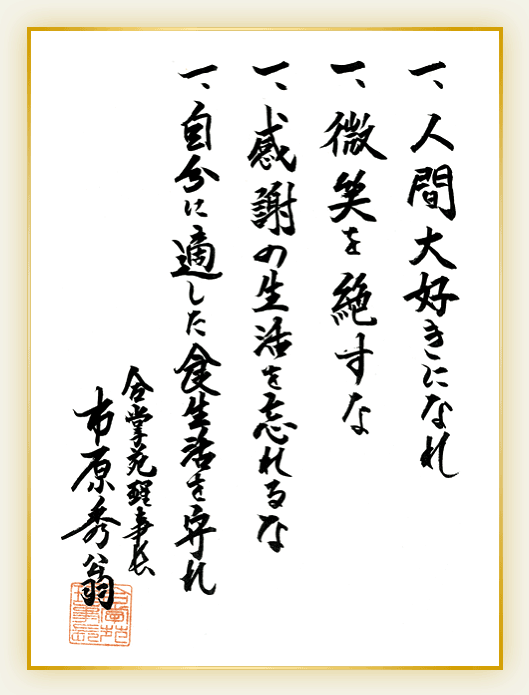 一、人間大好きになれ
一、微笑を絶すな
一、感謝の生活を忘れるな
一、自分に適した食生活を守れ
合掌苑理事長
市原秀翁